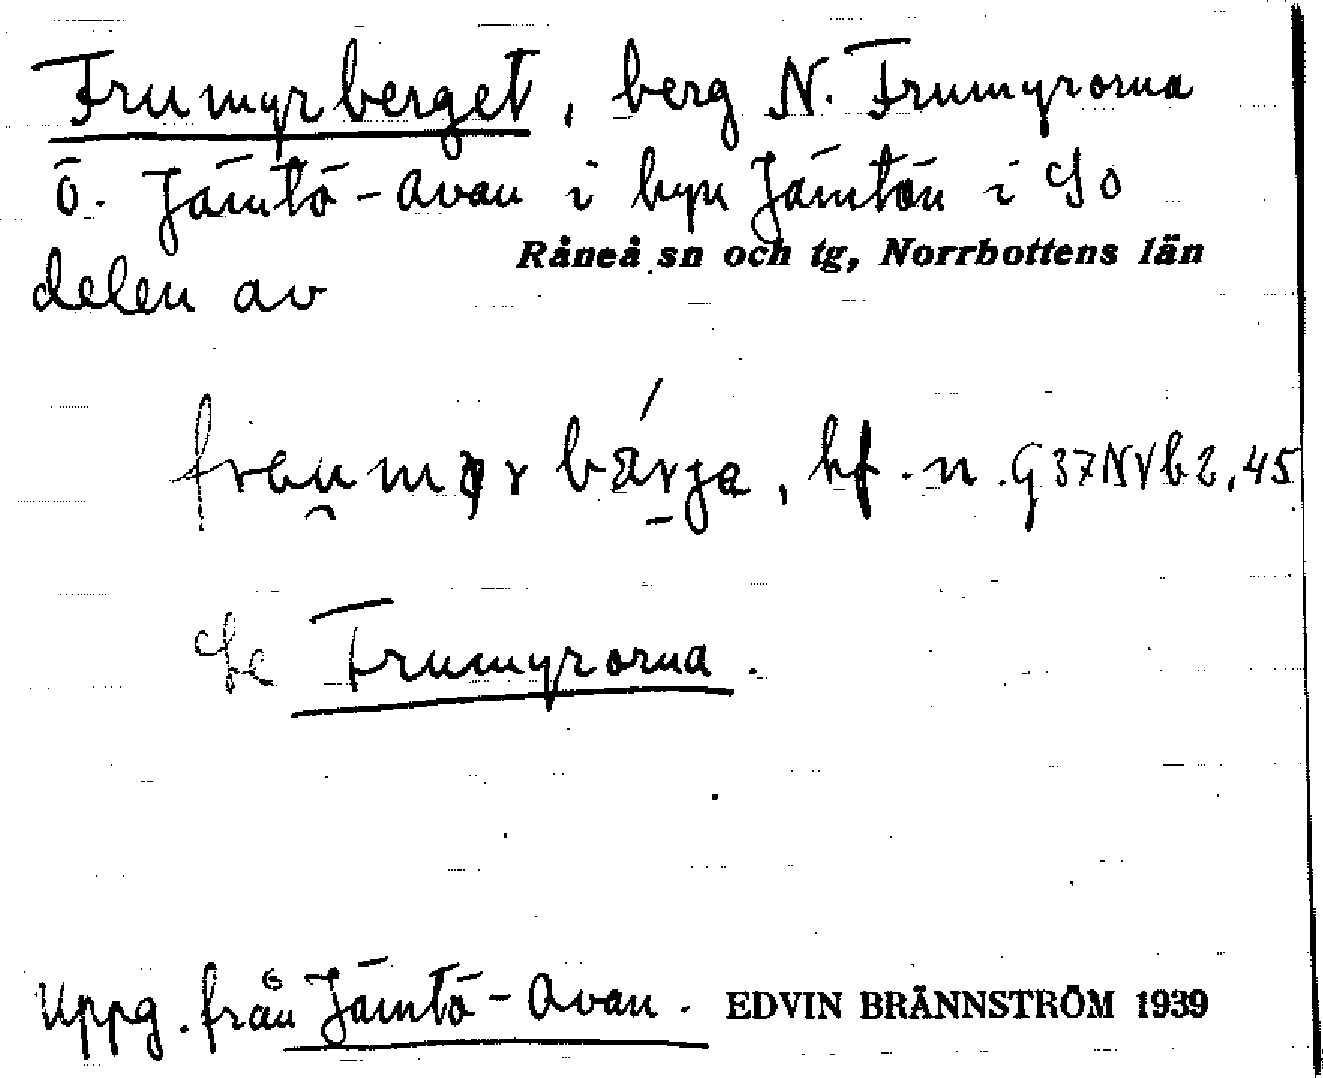 Frumyrberget, berg N. Frumyrorna
Ö. Jämtö-Avan i byn Jämtön i So
delen av
Råneå sn och tg, Norrbottens län
bf. n. G37NVb2,45
Se Frumyrorna.
Uppg. från Jämtö-Avan. EDVIN BRÄNNSTRÖM 1939